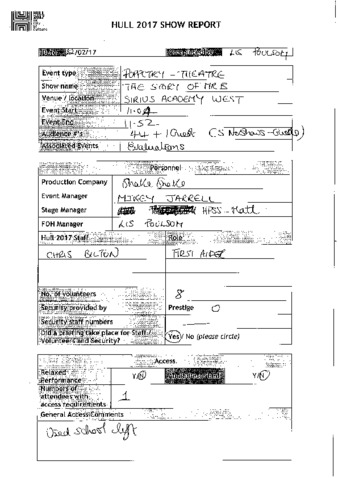 HULL 2017 SHOW REPORT
/02/17 LIS POULSOM
Event type POETRY - THEATRE
Show name THE STORY OF MRS B
Venue / location SIRIUS ACADEMY WEST
Event Start 11.04
Event End 11.52
Audience #'s 44 + 1 Guest (5 NoShows -
Associated Events Evaluations
Personnel
Production Company
Event Manager MIKEY JARRELL
Stage Manager HPSS - Matt
FOH Manager LIS POULSOM
Hull 2017 Staff Role
CHRIS BILTON FIRST AIDER
No. of volunteers 8
Security provided by Prestige 0
Security staff numbers
Did a briefing take place for Staff / Volunteers and Security? Yes / No (please circle)
Access
Relaxed Performance Y/N Audio Described Y/N
Numbers of attendees with access requirements 1
General Access Comments
Used school lift